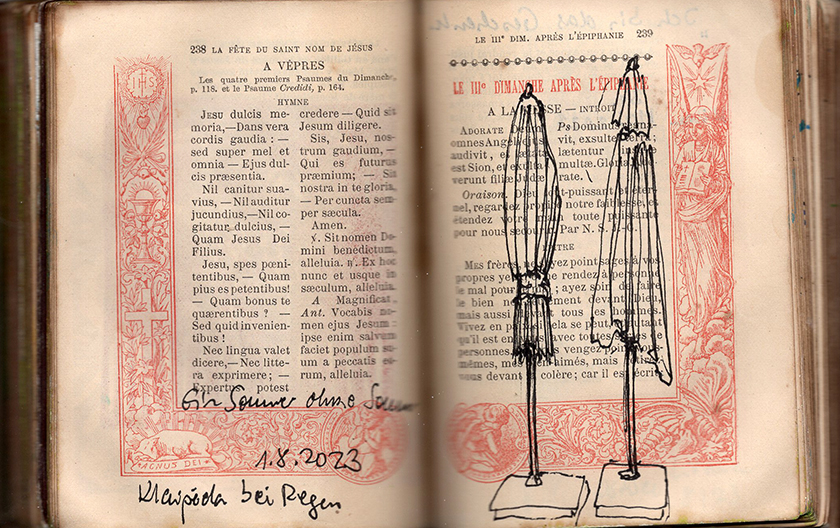 238 LA FÊTE DU SAINT NOM DE JÉSUS
A VÊPRES
Les quatre premiers Psaumes du Dimanche,
p. 118. et le Psaume Credidi, p. 164.
HYMNE
JESU dulcis me-
moria,—Dans vera
cordis gaudia : —
sed super mel et
omnia — Ejus dul-
cis præsentia.
Nil canitur sua-
vius, — Nil auditur
jucundius,—Nil co-
gitatur dulcius, —
Quam Jesus Dei
Filius.
Jesu, spes pœni-
tentibus, — Quam
pius es petentibus!
— Quam bonus te
quærentibus ? —
Sed quid invenien-
tibus !
Nec lingua valet
dicere,— Nec litte-
ra exprimere ; —
Expertus potest
credere — Quid sit
Jesum diligere.
Sis, Jesu, nos-
trum gaudium, —
Qui es futurus
præmium; — Sit
nostra in te gloria,
— Per cuncta sem-
per sæcula.
Amen.
℣. Sit nomen Do-
mini benedictum,
alleluia. ℟. Ex hoc
nunc et usque in
sæculum, alleluia.
A Magnificat.
Ant. Vocabis no-
men ejus Jesum :
ipse enim salvum
faciet populum su-
um a peccatis eo-
rum, alleluia.
IHS
AGNUS DEI
Ein Sommer ohne
1.8.2023
Klaipėda bei Regen
LE IIIe DIM. APRÈS L'ÉPIPHANIE 239
LE IIIe DIMANCHE APRÈS L'ÉPIPHANIE
A LA MESSE — INTROIT
ADORATE Deum
omnes Angeli ejus
audivit, et lætata
est Sion, et exult
verunt filiæ Judæ
Ps Dominus regna-
vit, exsultet terra ;
lætentur insulæ
multæ. Gloria
rate.
Oraison. Dieu tout-puissant et éter-
nel, regardez propice notre faiblesse, et
étendez votre main toute puissante
pour nous secourir. Par N. S. J.-C.
MES frères, ne soyez point sages à vos
propres yeux ne rendez à personne
le mal pour le mal ; ayez soin de faire
le bien non seulement devant Dieu,
mais aussi devant tous les hommes.
Vivez en paix si cela se peut, autant
qu'il est en vous avec toutes
personnes. Ne vous vengez point vous-
mêmes, mes bien-aimés, mais
vous devant la colère; car il est écrit